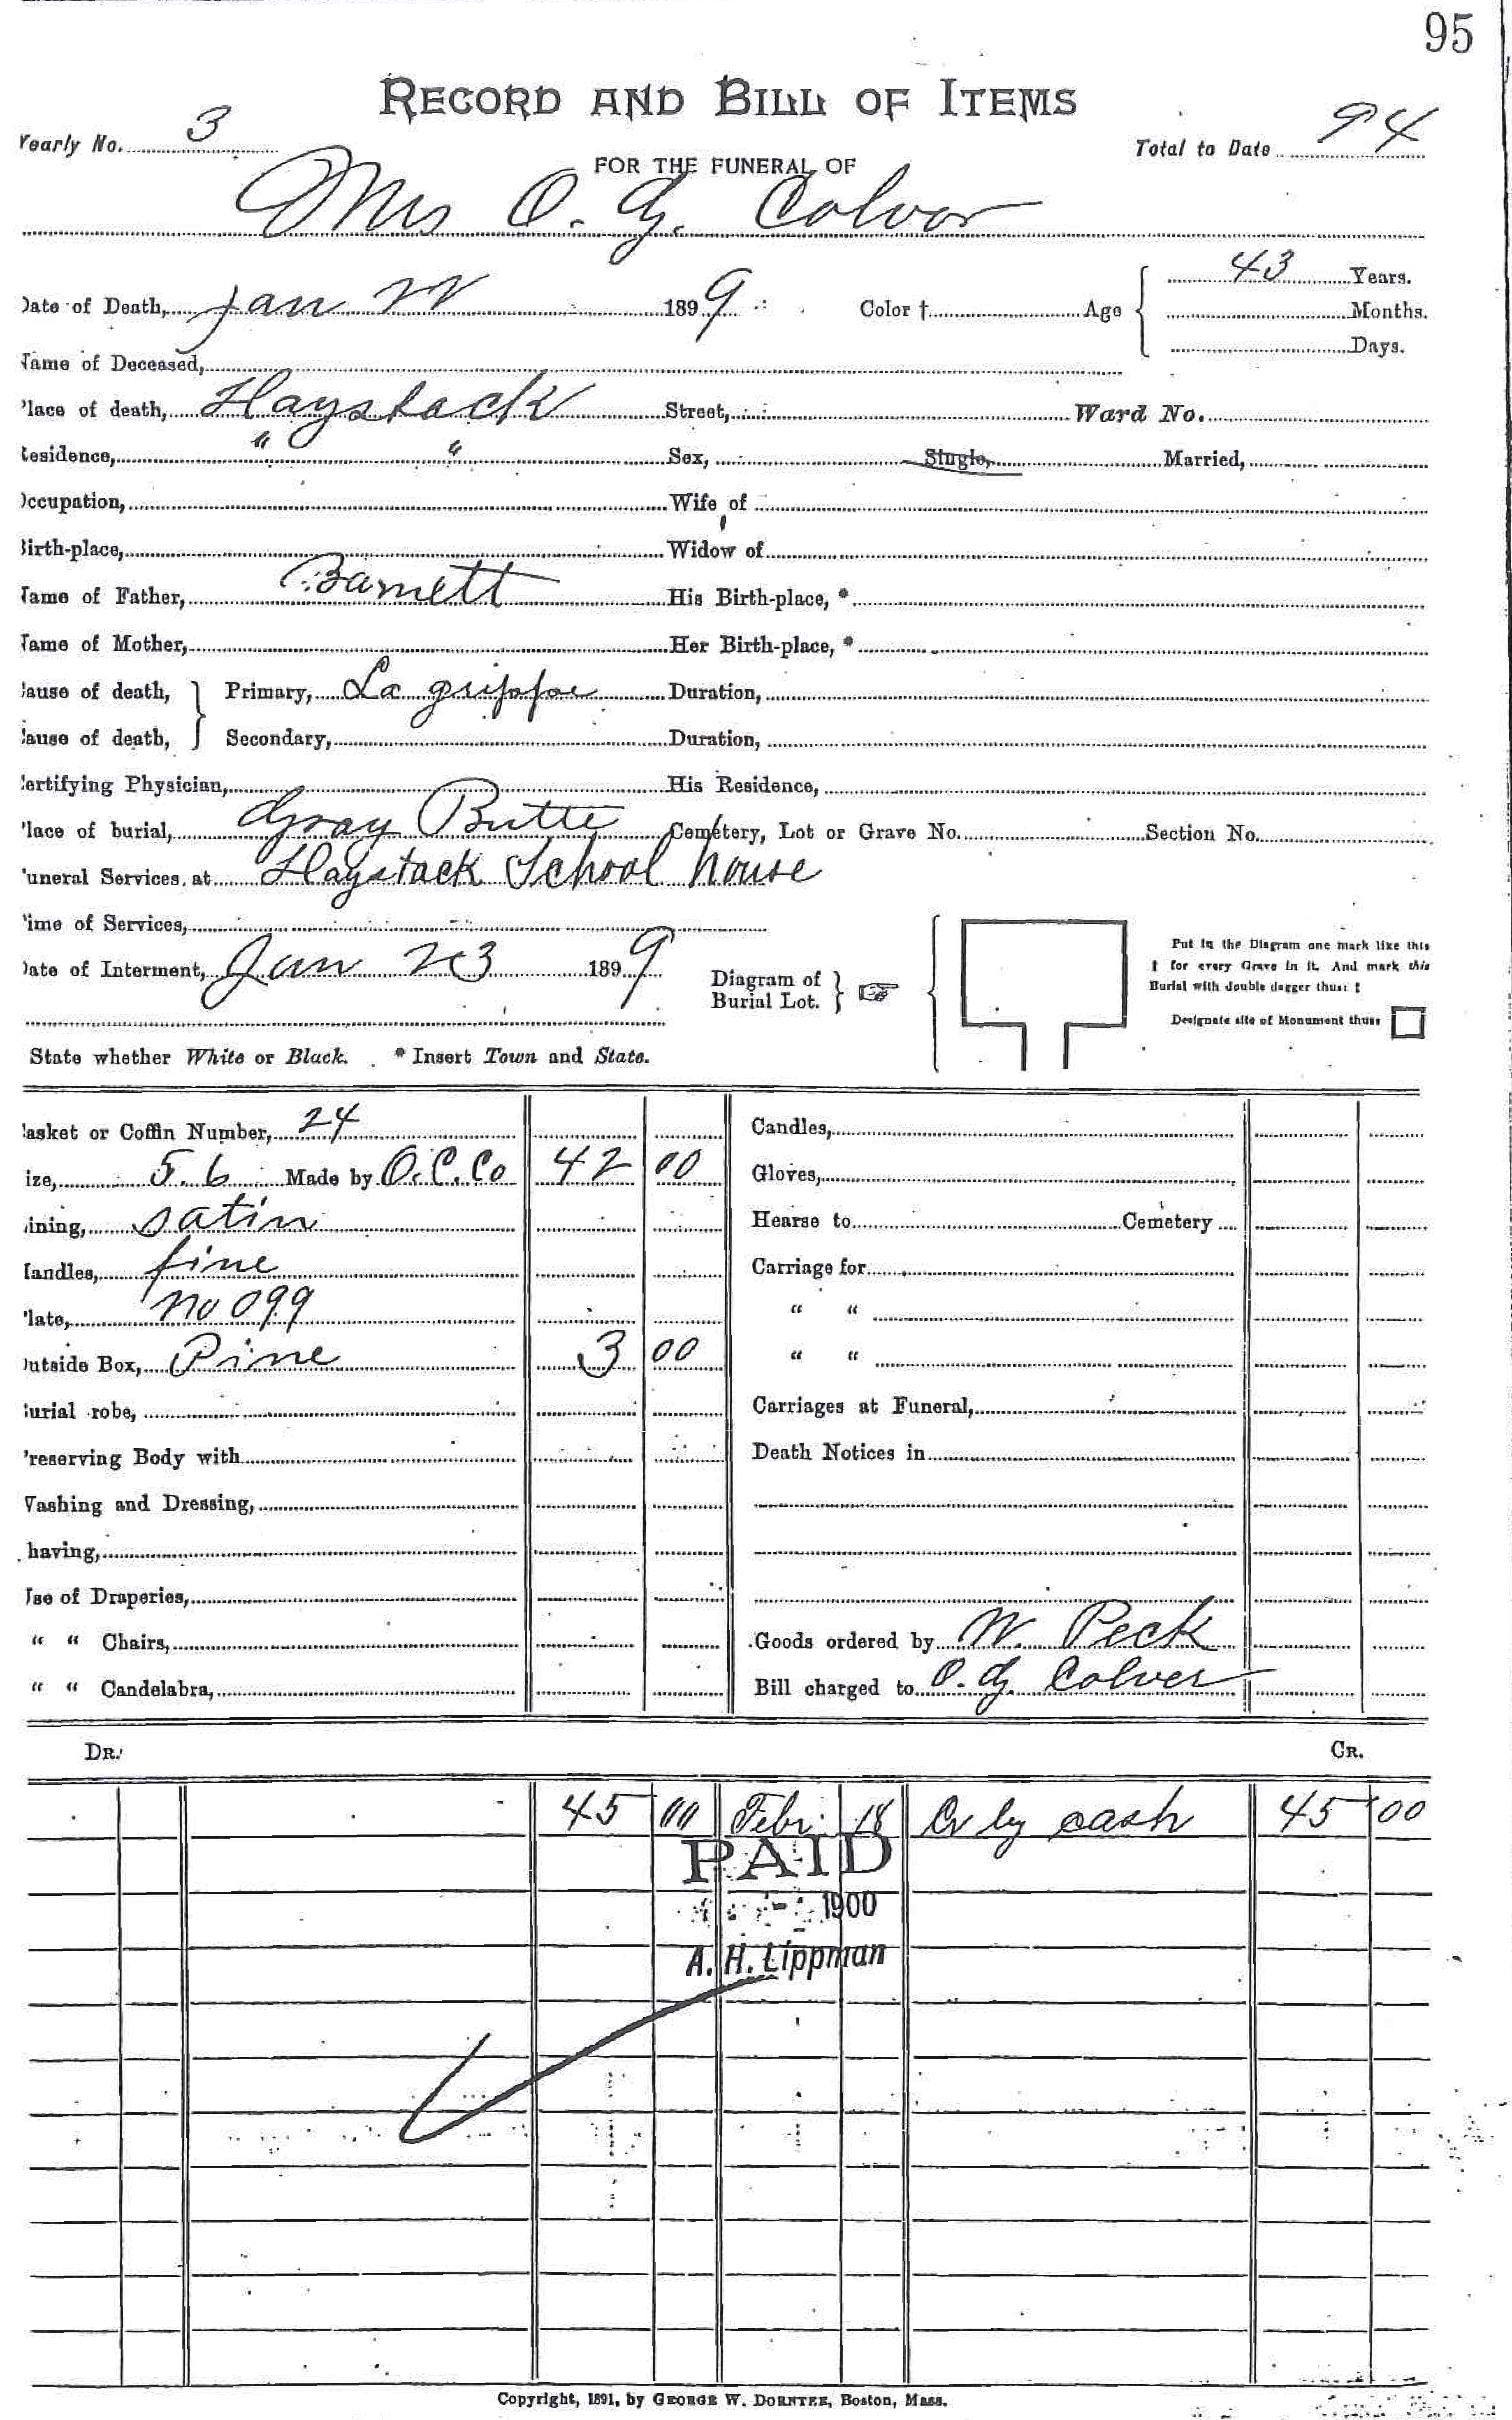 95
RECORD AND BILL OF ITEMS
Yearly No. 3
Total to Date 94
FOR THE FUNERAL OF
Mrs O. G. Colver
Date of Death, Jan 22 1899 Color † Age 43 Years.
Months.
Days.
Name of Deceased,
Place of death, Haystack Street, Ward No.
Residence, " " Sex, Single, Married,
Occupation, Wife of
Birth-place, Widow of
Name of Father, Barnett His Birth-place, *
Name of Mother, Her Birth-place, *
Cause of death, Primary, La grippe Duration,
Cause of death, Secondary, Duration,
Certifying Physician, His Residence,
Place of burial, Gray Butte Cemetery, Lot or Grave No. Section No.
Funeral Services at Haystack School house
Time of Services,
Date of Interment, Jan 23 1899
Diagram of Burial Lot.
Put in the Diagram one mark like this
† for every Grave in it. And mark this
Burial with double dagger thus: ‡
Designate site of Monument thus:
State whether White or Black. * Insert Town and State.
Casket or Coffin Number, 24 Candles,
Size, 5.6 Made by O.C.Co 42 00 Gloves,
Lining, satin Hearse to Cemetery
Handles, fine Carriage for
Plate, no 099 " "
Outside Box, Pine 3 00 " "
Burial robe, Carriages at Funeral,
Preserving Body with Death Notices in
Washing and Dressing,
Shaving,
Use of Draperies,
" " Chairs, Goods ordered by W. Peck
" " Candelabra, Bill charged to O. G. Colver
DR. CR.
45 00 Febr. 18 Cr by cash 45 00
PAID
1900
A. H. Lippman
Copyright, 1891, by GEORGE W. DORNTEE, Boston, Mass.